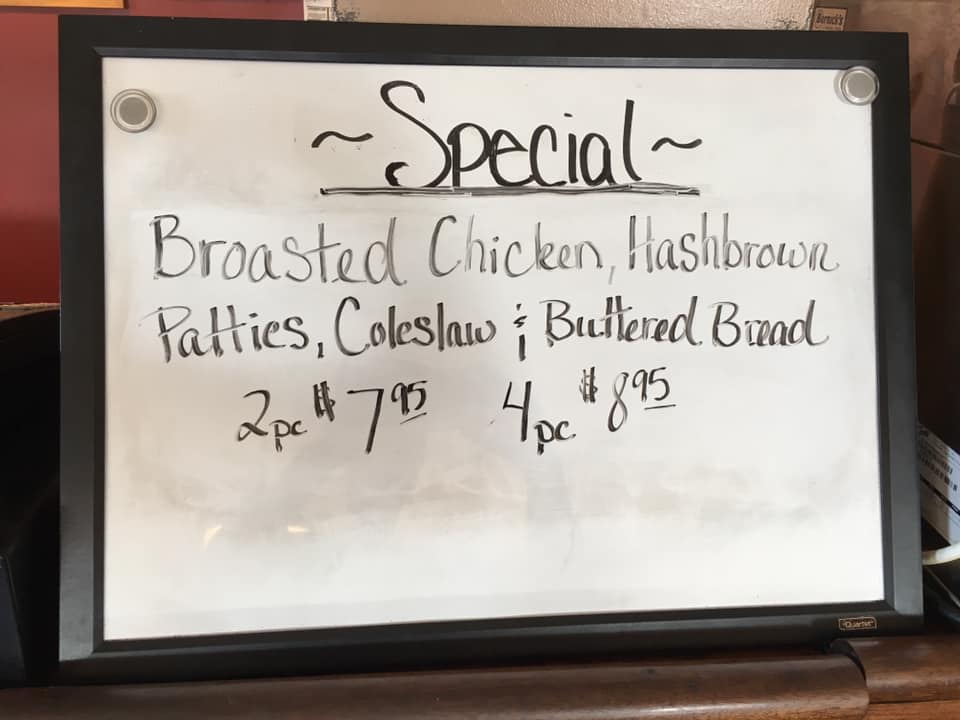 Bernick's
~Special~
Broasted Chicken, Hashbrown
Patties, Coleslaw & Buttered Bread
2pc $7.95 4pc $8.95
Quartet